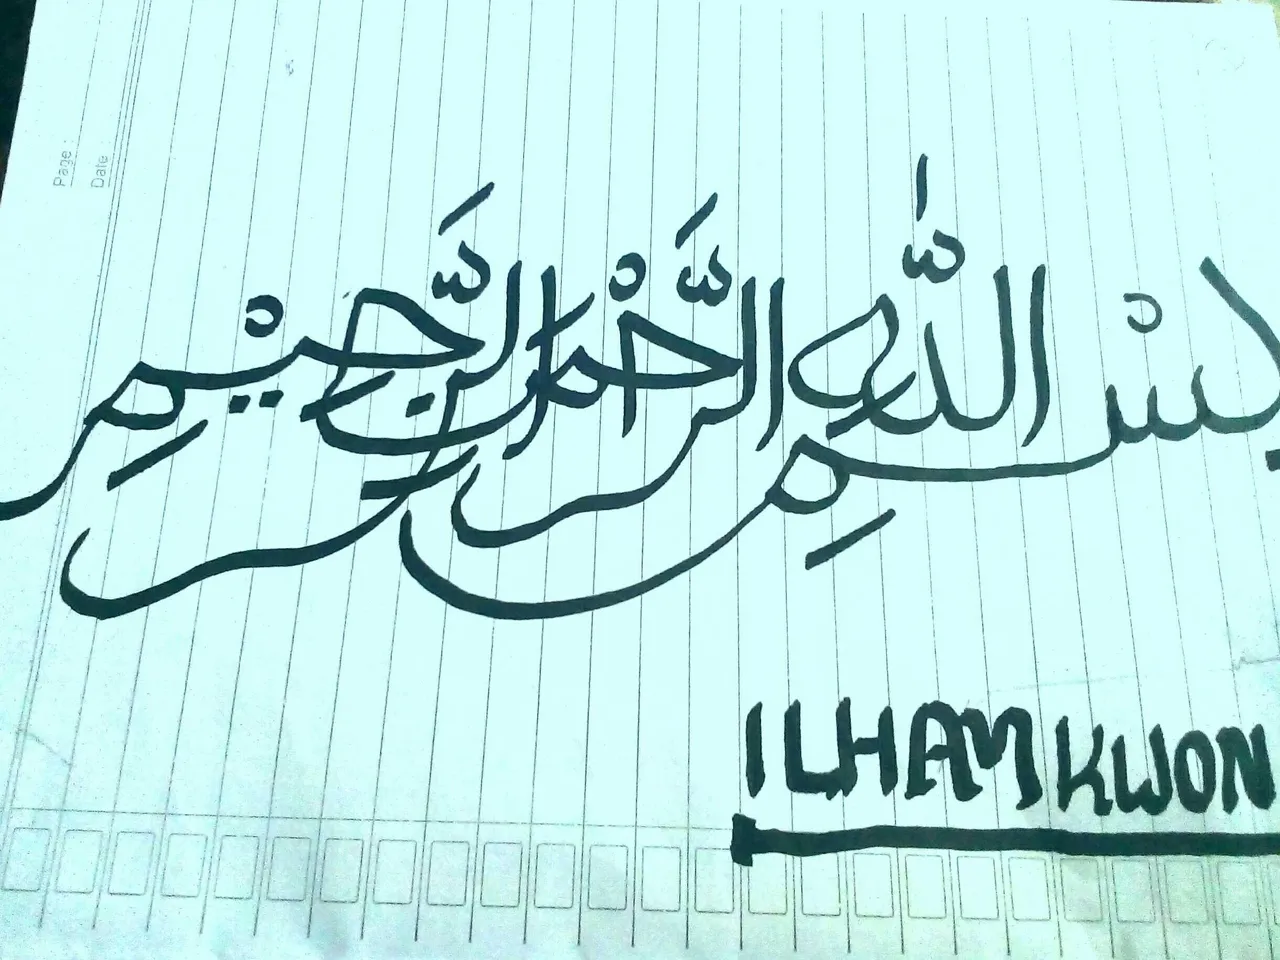 بِسْمِ اللّٰهِ الرَّحْمٰنِ الرَّحِيْمِ
ILHAM KWON
Page :
Date :